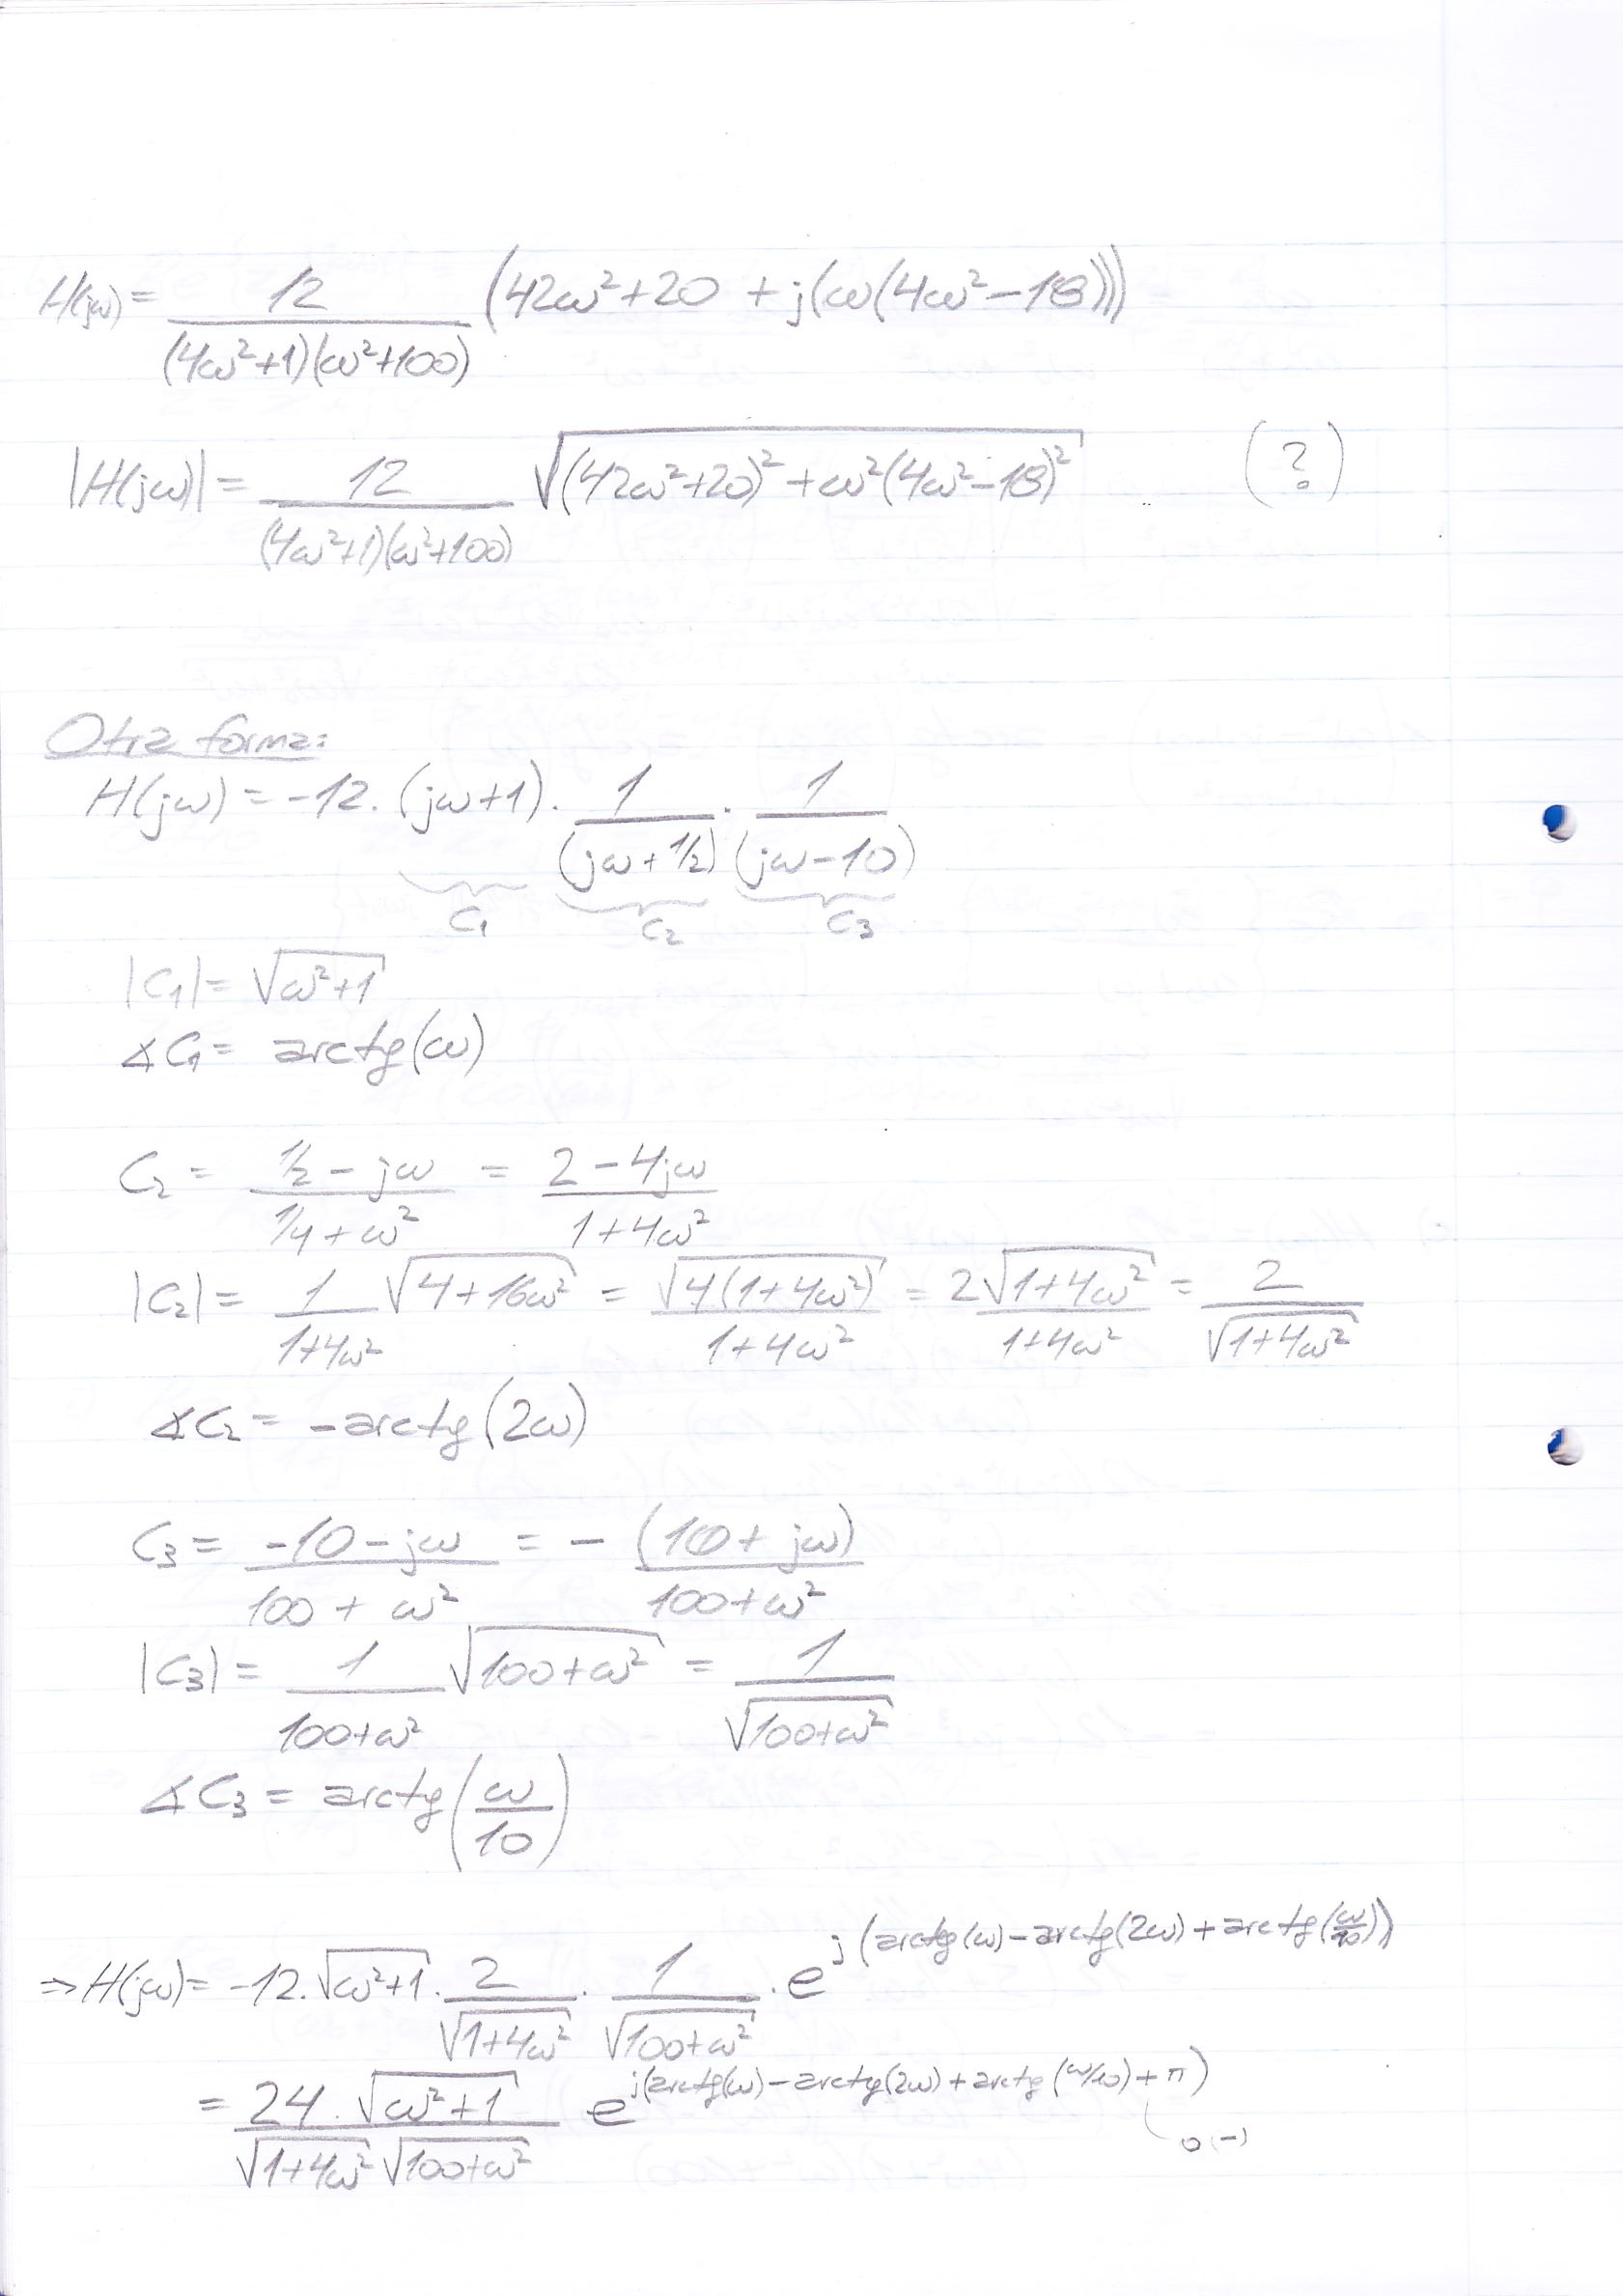 H(jω) = 12 / ((4ω²+1)(ω²+100)) (42ω²+20 + j(ω(4ω²−18)))
|H(jω)| = 12 / ((4ω²+1)(ω²+100)) √((42ω²+20)² + ω²(4ω²−18)²) (?)
Otra forma:
H(jω) = −12 · (jω+1) · 1/(jω+1/2) · 1/(jω−10)
C₁ C₂ C₃
|C₁| = √(ω²+1)
∡C₁ = arctg(ω)
C₂ = (1/2 − jω)/(1/4 + ω²) = (2 − 4jω)/(1+4ω²)
|C₂| = 1/(1+4ω²) √(4+16ω²) = √(4(1+4ω²))/(1+4ω²) = 2√(1+4ω²)/(1+4ω²) = 2/√(1+4ω²)
∡C₂ = −arctg(2ω)
C₃ = (−10−jω)/(100 + ω²) = −(10+jω)/(100+ω²)
|C₃| = 1/(100+ω²) √(100+ω²) = 1/√(100+ω²)
∡C₃ = arctg(ω/10)
⇒ H(jω) = −12 · √(ω²+1) · 2/√(1+4ω²) · 1/√(100+ω²) · e^(j(arctg(ω)−arctg(2ω)+arctg(ω/10)))
= 24 · √(ω²+1) / (√(1+4ω²) √(100+ω²)) e^(j(arctg(ω)−arctg(2ω)+arctg(ω/10)+π))
o (−)